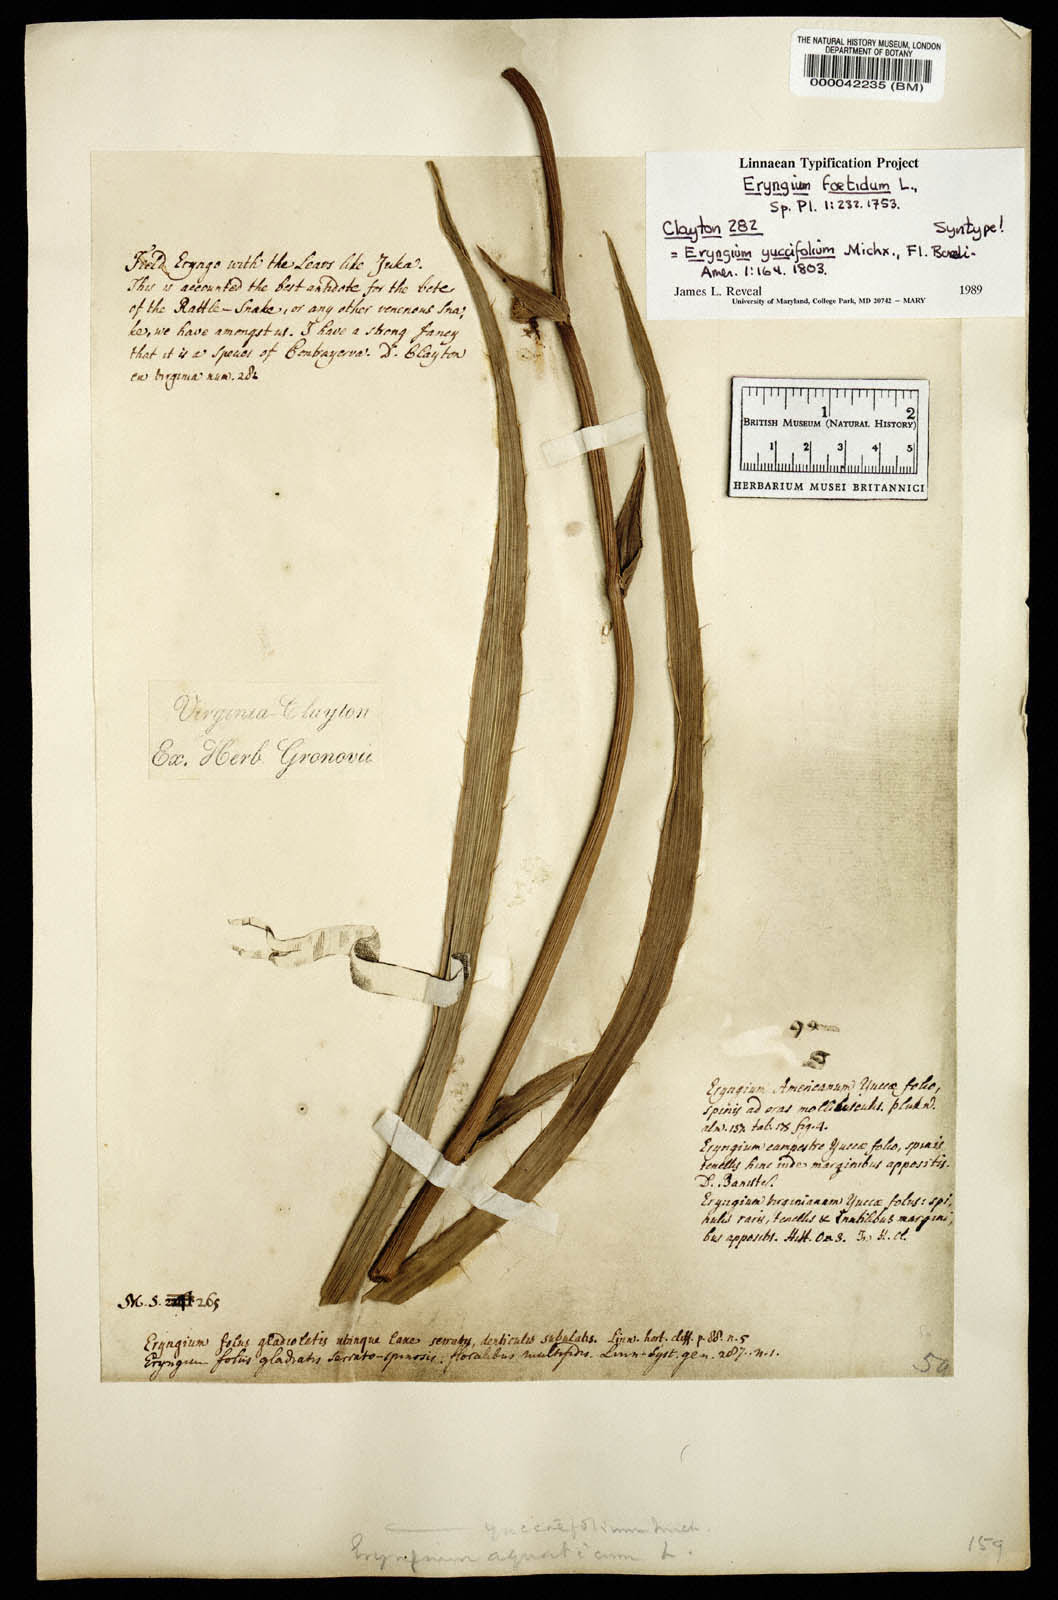 THE NATURAL HISTORY MUSEUM, LONDON
DEPARTMENT OF BOTANY
000042235 (BM)
Linnaean Typification Project
Eryngium foetidum L.,
Sp. Pl. 1:232. 1753.
Clayton 282 Syntype!
= Eryngium yuccifolium Michx., Fl. Boreli-
Amer. 1:164. 1803.
James L. Reveal 1989
University of Maryland, College Park, MD 20742 – MARY
Field Eryngo with the Leavs like Juka.
This is accounted the best antidote for the bete
of the Rattle-Snake, or any other venenous Sna,
ke, we have amongst us. I have a strong fancy
that it is a Species of Contrayerva. D. Clayton
ex Virginia num. 282
1 2
BRITISH MUSEUM (NATURAL HISTORY)
1 2 3 4 5
HERBARIUM MUSEI BRITANNICI
Virginia Clayton
Ex. Herb Gronovii
Eryngium Americanum Yuccæ folio,
spinis ad oras molliusculis. Plukn.
alm. 13. tab. 175 fig. 4.
Eryngium campestre Yuccæ folio, spinis
tenellis hinc inde marginibus appositis.
D. Banister.
Eryngium virginianum Yuccæ foliis: spi,
nulis raris, tenellis & inutilibus margini,
bus appositis. Hist. Ox. 3.
M. S. 265
Eryngium foliis gladiolatis utinque laxe serratis, denticulis subulatis. Linn. hort. cliff. p. 88. n. 5
Eryngium foliis gladiatis serrato-spinosis: floralibus multifidis. Linn. Syst. gen. 287. n. 1.
59
yuccaefolium Mich.
Eryngium aquaticum L.
159